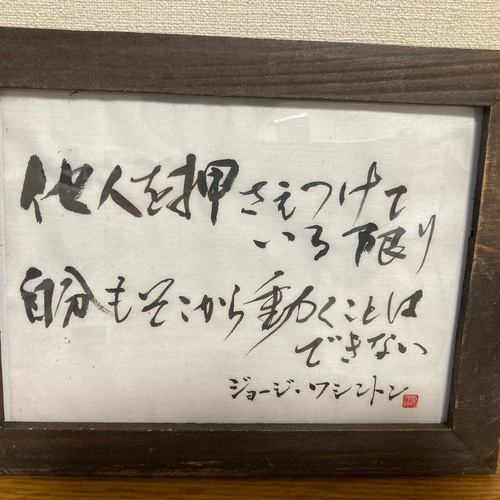 他人を押さえつけて
いる限り
自分もそこから動くことは
できない
ジョージ・ワシントン